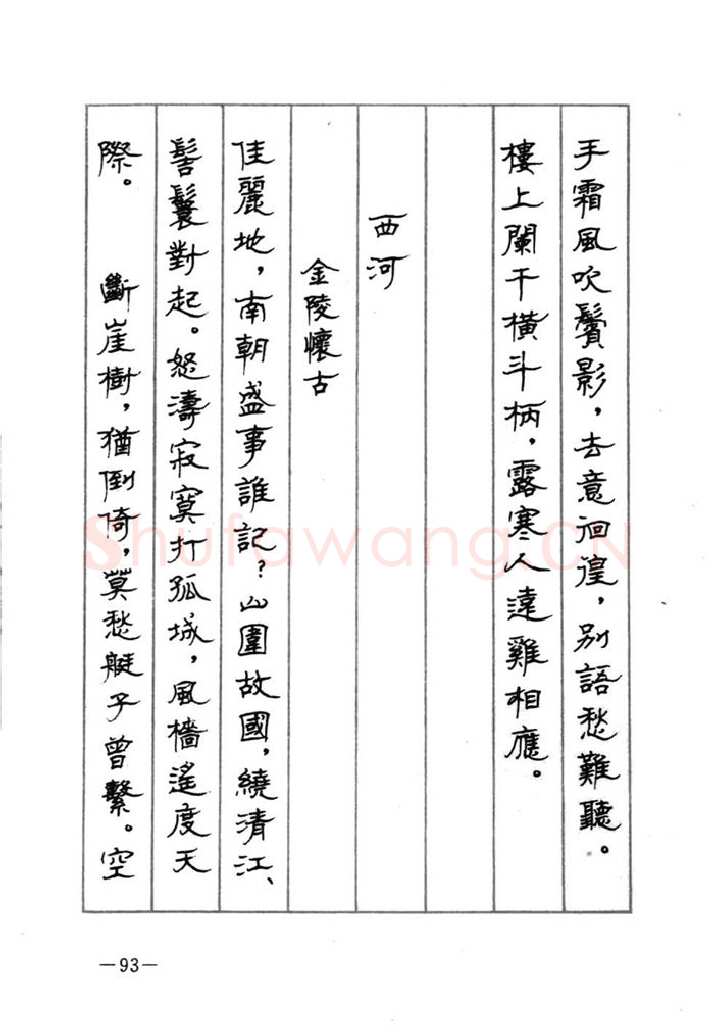 手霜風吹鬢影，去意徊徨，别語愁難聽。
樓上闌干橫斗柄，露寒人遠雞相應。
西河
金陵懷古
佳麗地，南朝盛事誰記？山圍故國，繞清江、
髻鬟對起。怒濤寂寞打孤城，風檣遙度天
際。　斷崖樹，猶倒倚，莫愁艇子曾繫。空
—93—
Shufawang.CN